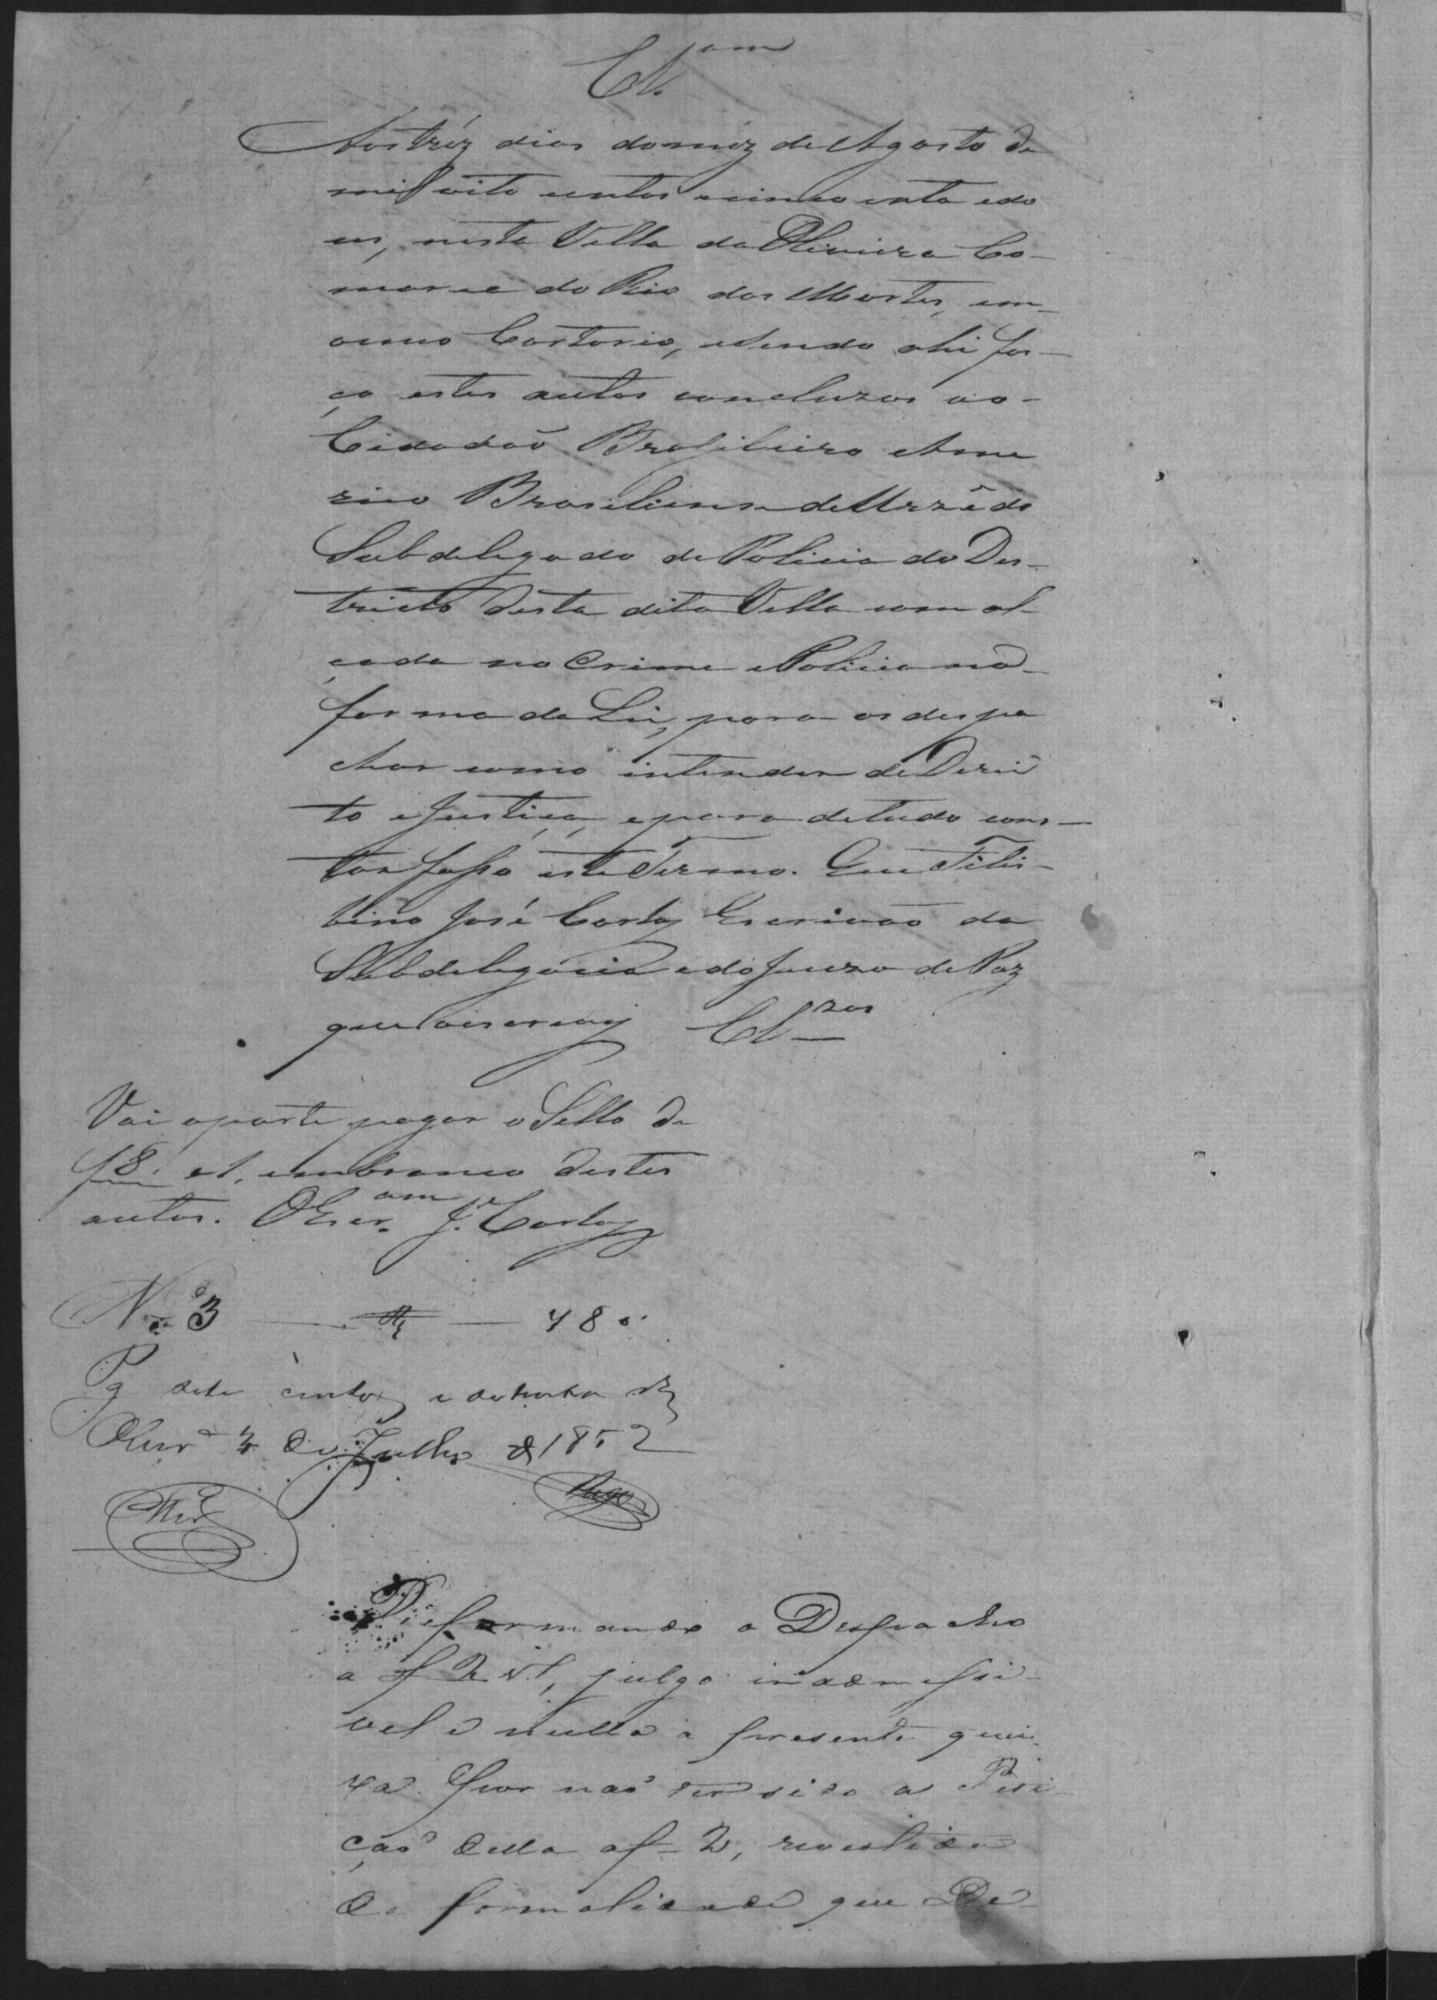 Cl.am
Aos tréz dias do mêz de Agosto de
mil oito centos e cinco enta e do
us, nesta Villa da Oliveira Co-
marca do Rio das Mortes, em
omeo Cartorio, e sendo ahi fas-
ço estes autos concluzos ao
Cidadaõ Brasileiro Ame
rico Brasiliense de Urzêdo
Subdelegado de Policia do Des-
tricto desta dita Villa com al-
çada no Crime e Policia na
forma da Lei, para os despa
char como intender de Derei
to e Justiça, e para de tudo cons-
tar fasso este Termo. Eu Felis-
bino José Carlos Escrivaõ da
Subdelegacia e do Juizo de Paz
que o escrevy Cl.zos
Vai a parte pagar o Sello de
f 8. al. em branco destes
autos. O Escr.am J. Carlos
N.º 3 — Rs — 480
Pg quatro centos e oitenta rs
Olivr.a 4 de Julho d 1852
Reformando o Despacho
a f 2 v., julgo inadmessi-
vel e nulla a presente quei-
xa por naõ ter sido a Peti-
çaõ della a f 2, revestida
da formalidade que De